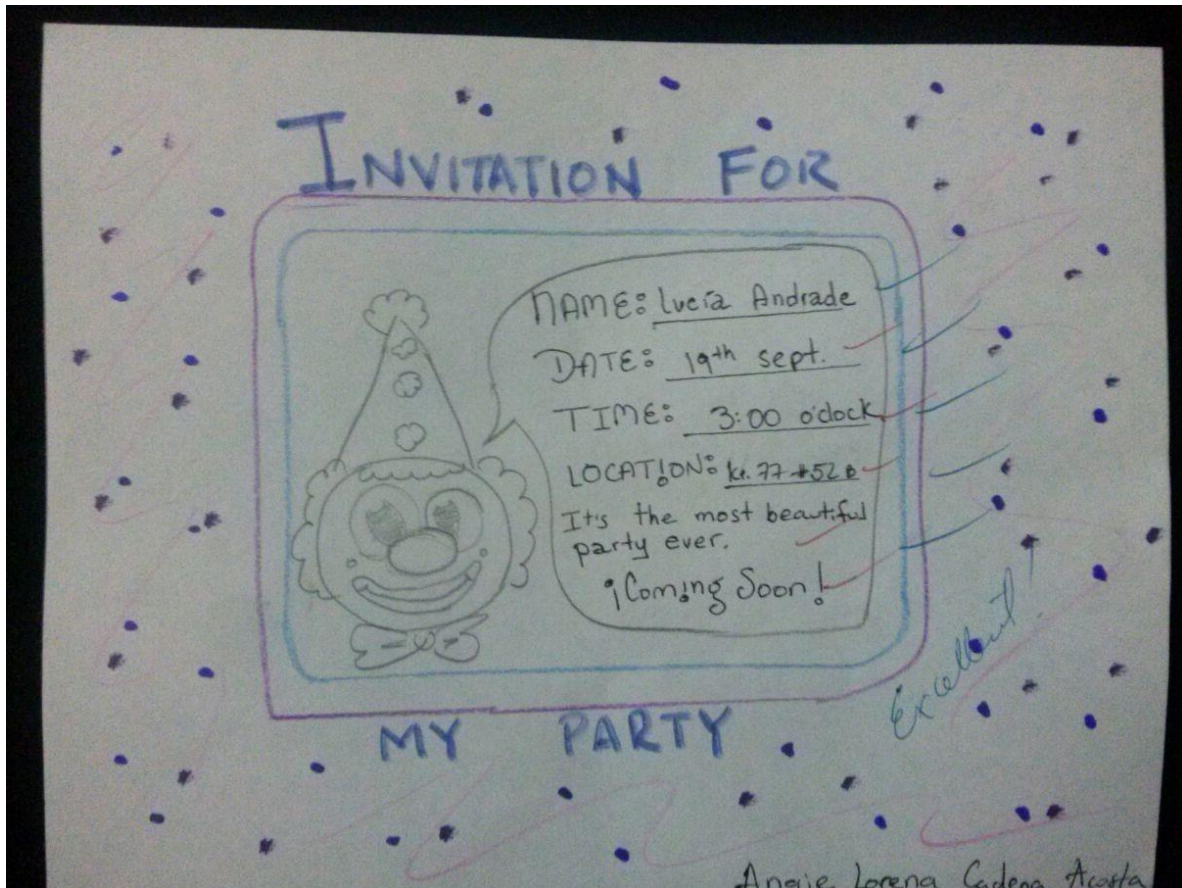 INVITATION FOR
NAME: Lucía Andrade
DATE: 19th sept.
TIME: 3:00 o'clock
LOCATION: kr. 77 #52 B
It's the most beautiful
party ever.
¡Coming Soon!
Excellent!
MY PARTY
Angie Lorena Cadena Acosta